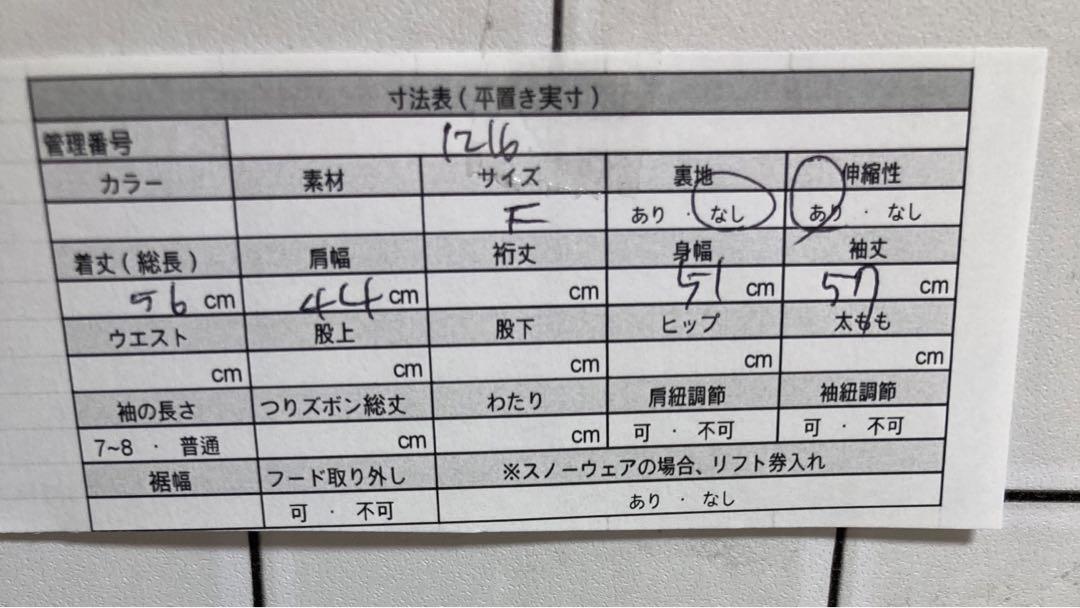 寸法表(平置き実寸)
管理番号 1216
カラー 素材 サイズ 裏地 伸縮性
F あり ・ なし あり ・ なし
着丈(総長) 肩幅 裄丈 身幅 袖丈
56 cm 44 cm cm 51 cm 57 cm
ウエスト 股上 股下 ヒップ 太もも
cm cm cm cm cm
袖の長さ つりズボン総丈 わたり 肩紐調節 袖紐調節
7~8 ・ 普通 cm cm 可 ・ 不可 可 ・ 不可
裾幅 フード取り外し ※スノーウェアの場合、リフト券入れ
可 ・ 不可 あり ・ なし